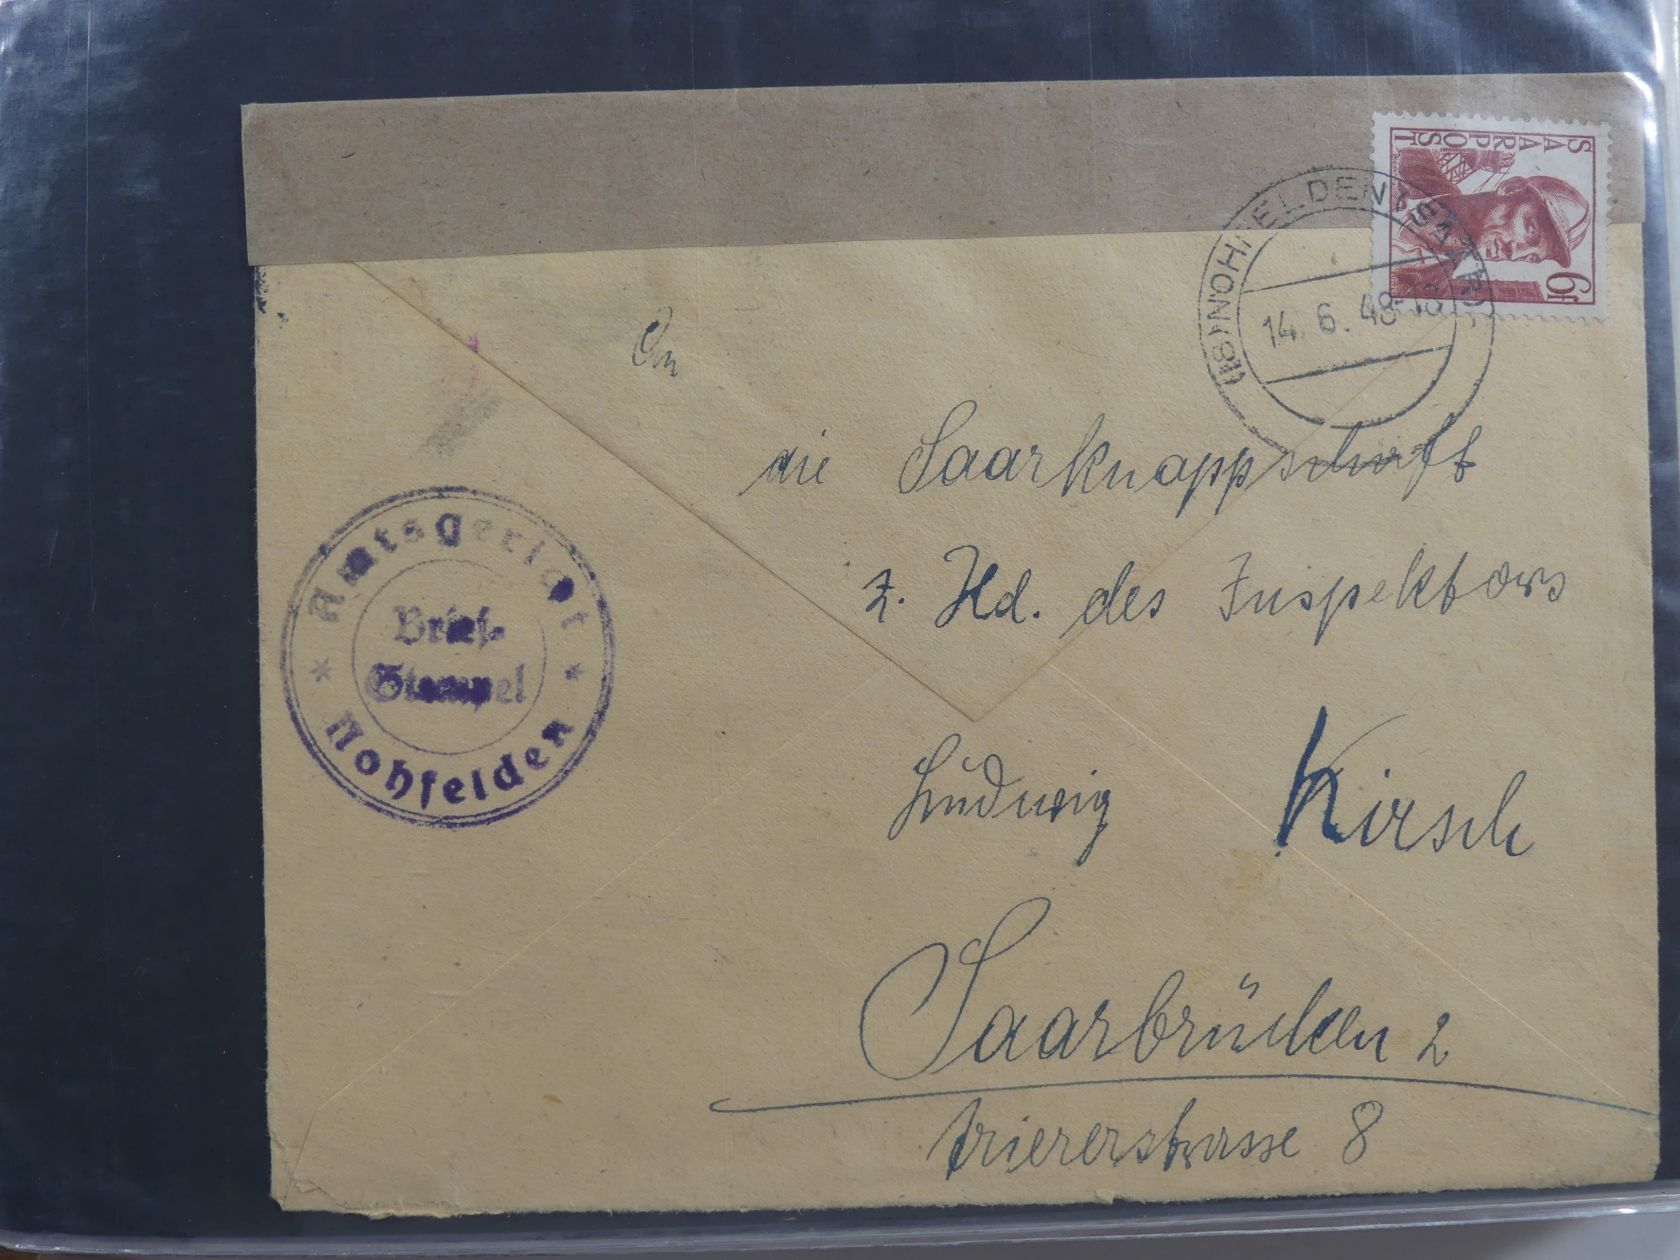 SAAR
POST
6F
(18) NOHFELDEN (SAAR)
14. 6. 48-18
An
die Saarknappschaft
z. Hd. des Inspektors
Ludwig Kirsch
Saarbrücken 2
Triererstrasse 8
Amtsgericht
Brief-
Stempel
Nohfelden